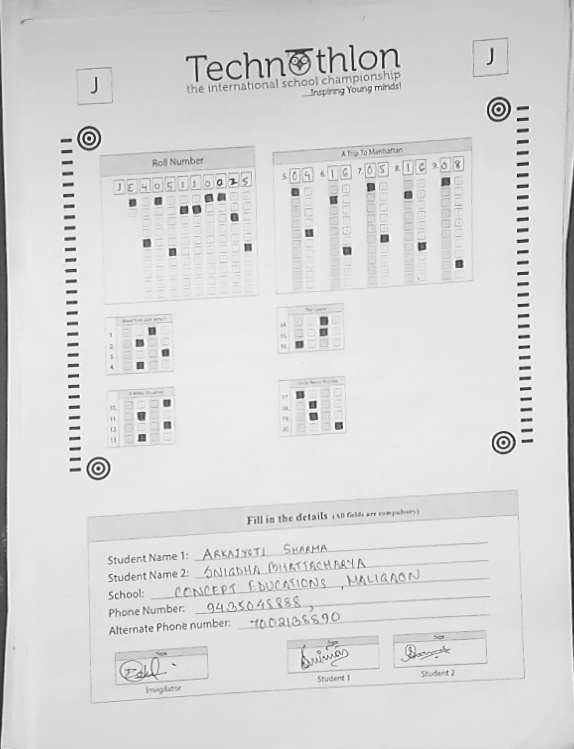 J
Technothlon
J
the international school championship
...Inspiring Young minds!
Roll Number
A Trip To Manhattan
J E 4 0 5 1 1 0 0 2 5
5. 0 4 6. 1 6 7. 0 5 8. 1 6 9. 0 8
1.
2.
3.
4.
14.
15.
16.
10.
11.
12.
13.
17.
18.
19.
20.
Fill in the details (All fields are compulsory)
Student Name 1: ARKAJYOTI SHARMA
Student Name 2: SNIGDHA BHATTACHARYA
School: CONCEPT EDUCATIONS, MALIGAON
Phone Number:
Alternate Phone number:
Sign
Sign
Sign
Invigilator
Student 1
Student 2